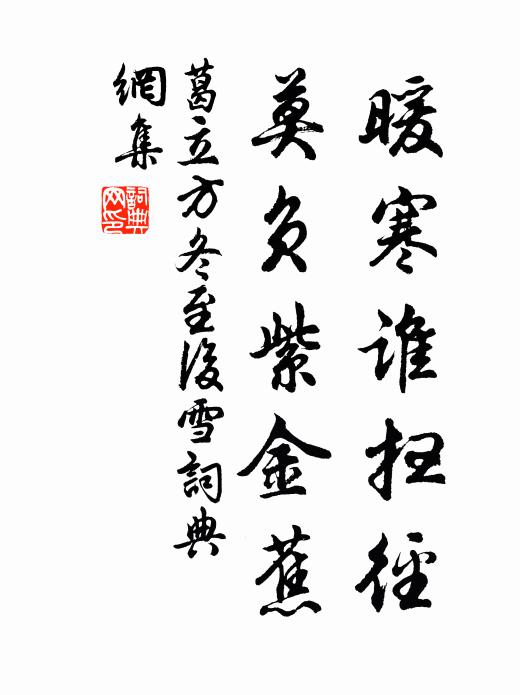 暖寒谁扫径
莫负紫金蕉
葛立方冬至後雪詞典
網集
詞典网印